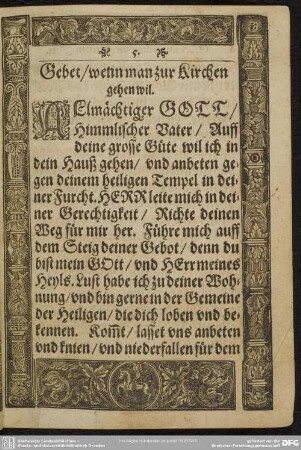 5.
Gebet/wenn man zur Kirchen
gehen wil.
ALmächtiger GOTT/
Himmlischer Vater/ Auff
deine grosse Güte wil ich in
dein Hauß gehen/ vnd anbeten ge-
gen deinem heiligen Tempel in dei-
ner Furcht. HERR leite mich in dei-
ner Gerechtigkeit/ Richte deinen
Weg für mir her. Führe mich auff
dem Steig deiner Gebot/ denn du
bist mein GOtt/ vnd HErr meines
Heyls. Lust habe ich zu deiner Woh-
nung/ vnd bin gerne in der Gemeine
der Heiligen/ die dich loben vnd be-
kennen. Kom̃t/ lasset vns anbeten
vnd knien/ vnd niederfallen für dem